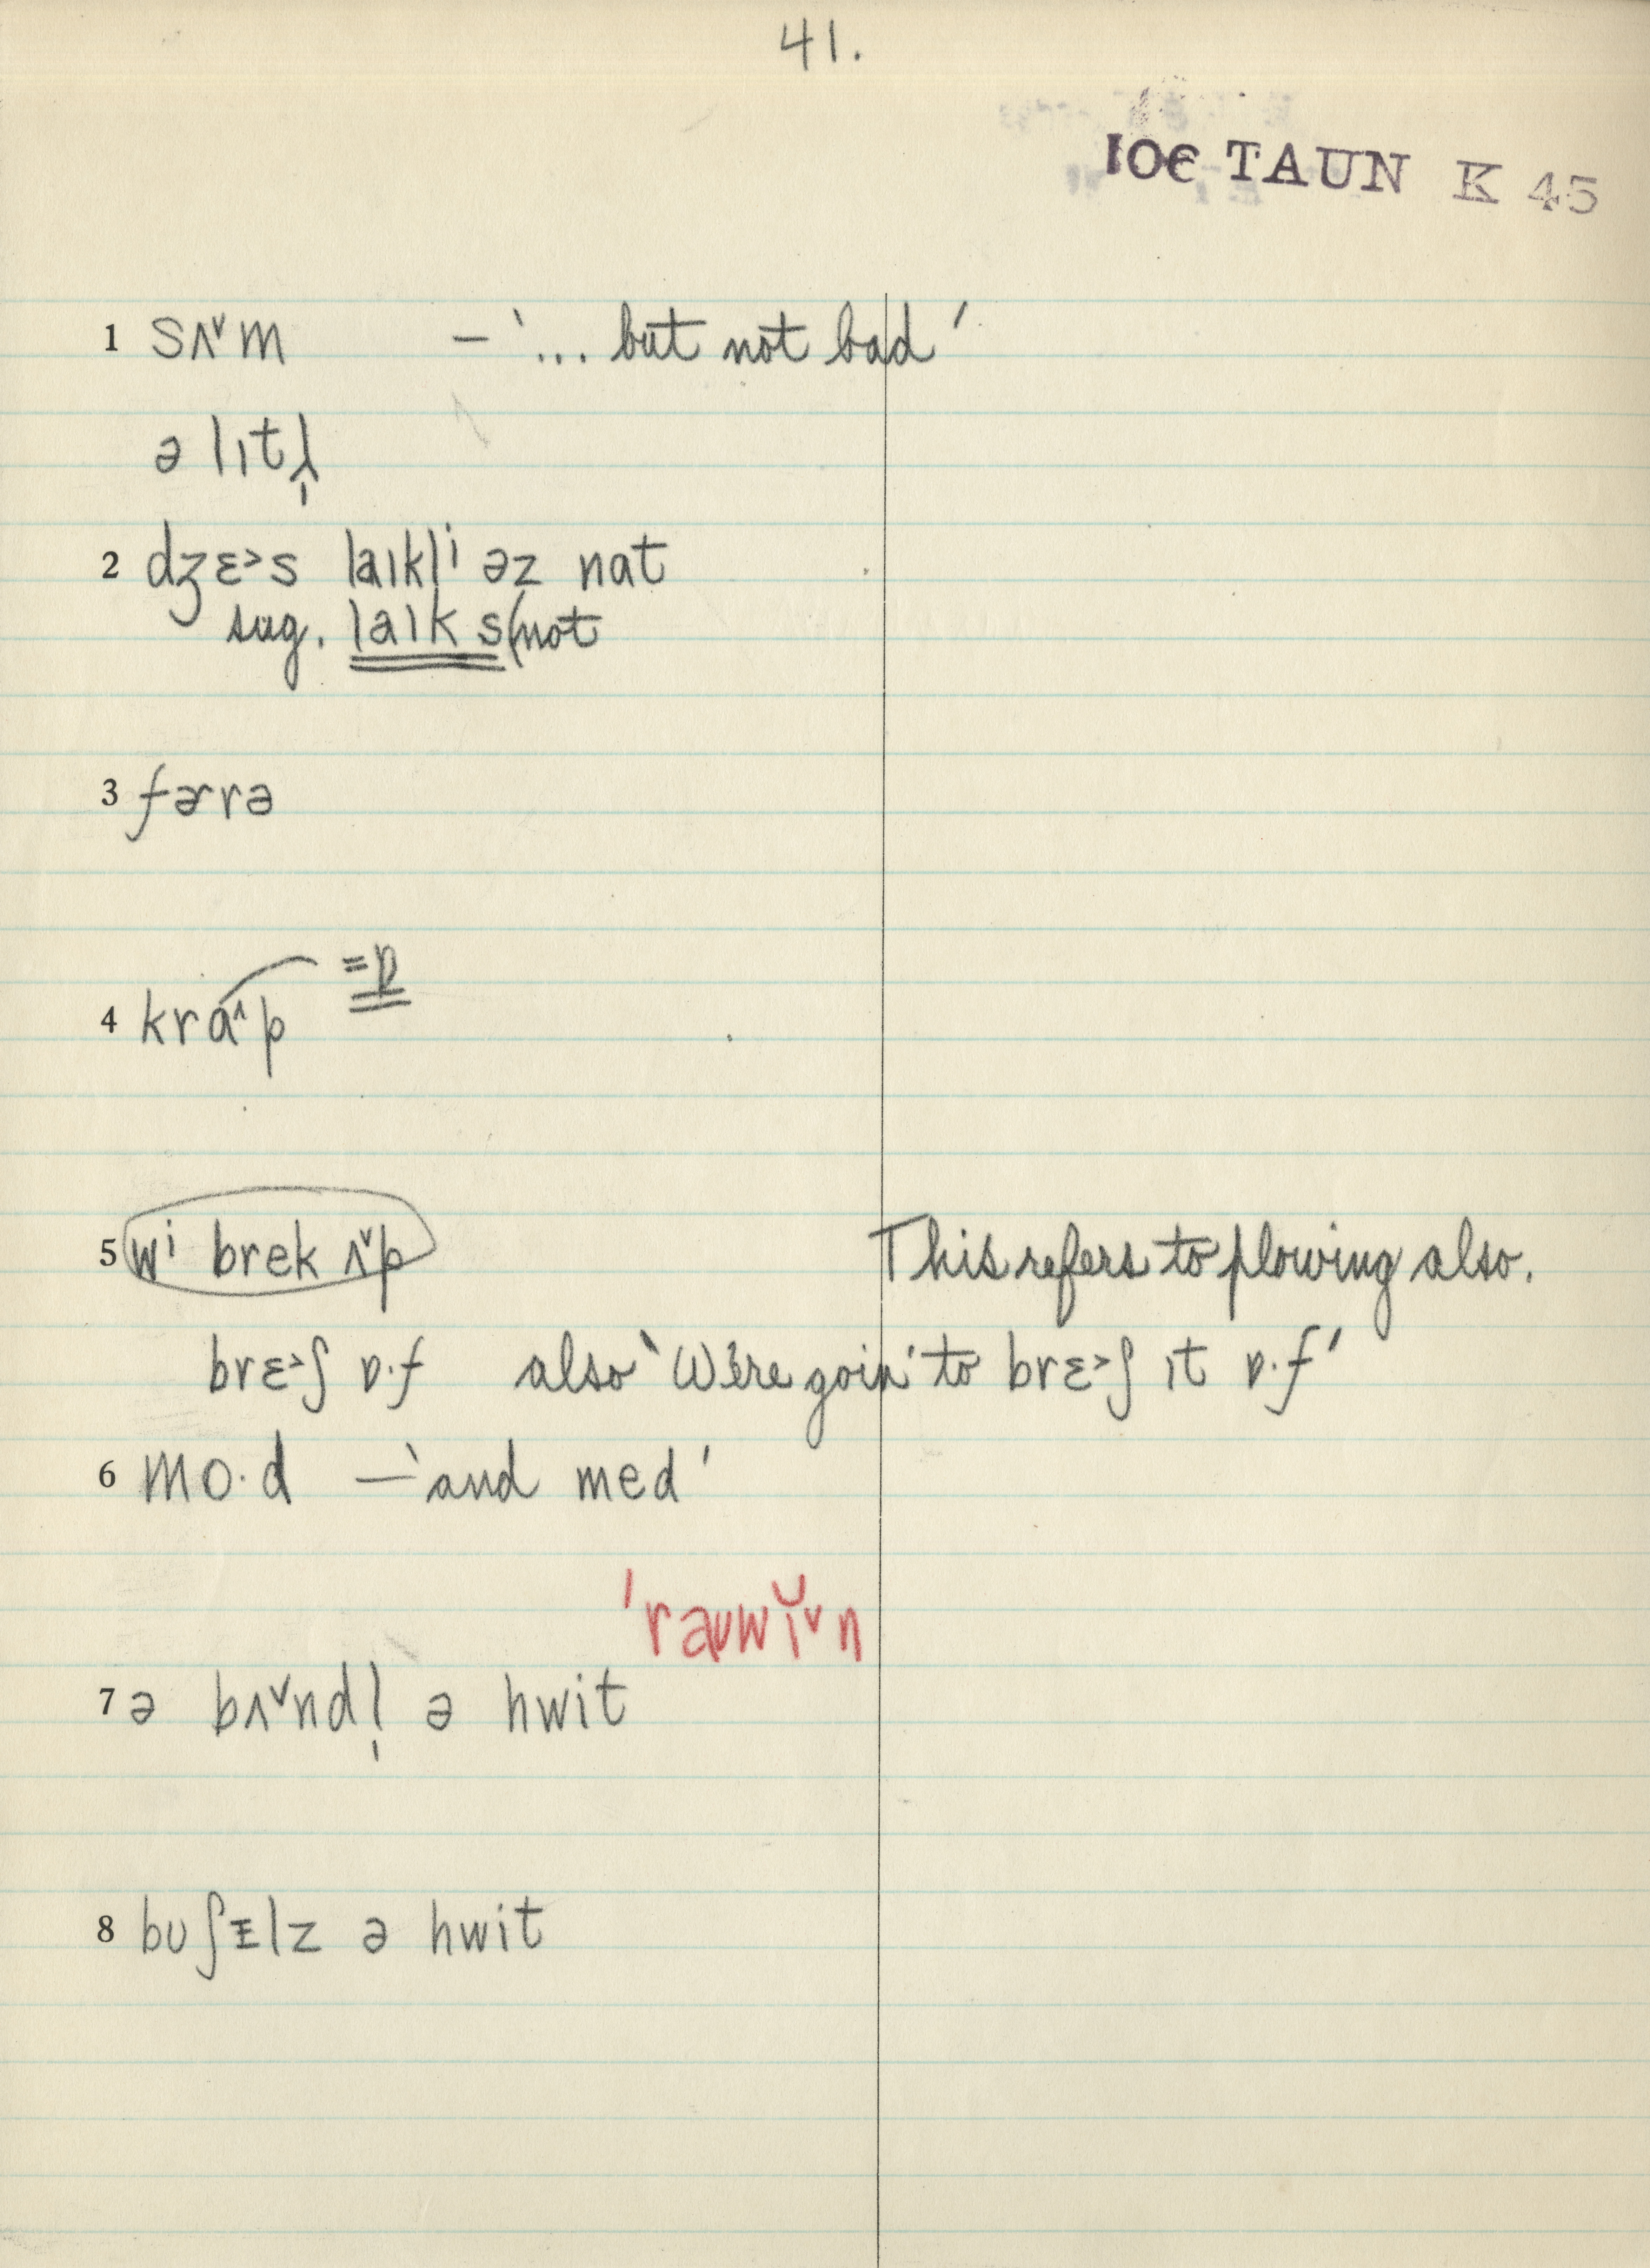 41.
IOE TAUN K 45
1 sʌ˅m – '... but not bad'
ə lɪtl̩
2 dʒɛ˃s laɪklⁱ əz nat
sug. laɪk s(not
3 fɚrə
4 krɑ˄p =ɒ
5 wⁱ brek ʌ˅p This refers to plowing also.
brɛ˃ʃ ɒ·f also 'We're goin' to brɛ˃ʃ ɪt ɒ·f'
6 mo·d – 'and med'
'raʊwĭ˅n
7 ə bʌ˅ndl̩ ə hwit
8 bʊʃᵻlz ə hwit